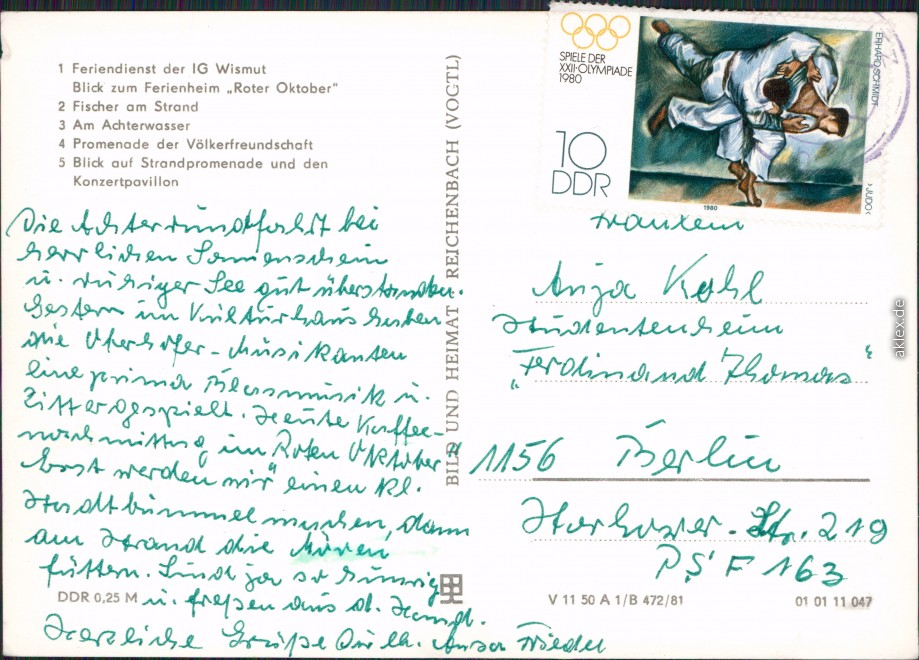 1 Feriendienst der IG Wismut
Blick zum Ferienheim „Roter Oktober“
2 Fischer am Strand
3 Am Achterwasser
4 Promenade der Völkerfreundschaft
5 Blick auf Strandpromenade und den
Konzertpavillon
Die Achterrundfahrt bei
herrlichen Sonnenschein
u. ruhiger See gut überstanden.
Gestern im Kulturhaus haben
die Oberhofer-Musikanten
eine prima Blasmusik u.
Zitter gespielt. Heute Kaffee-
nachmittag im Roten Oktober"
werden wir einen kl.
Stadtbummel machen, dann
am Strand die Möven
füttern. Sind ja so hungrig
u. freßen aus d. Hand.
Herzliche Grüße
DDR 0,25 M
BILD UND HEIMAT REICHENBACH (VOGTL)
SPIELE DER
XXII·OLYMPIADE
1980
10
DDR
ERHARD SCHMIDT
›JUDO‹
1980
Fräulein
Kohl
Studentenheim
„Ferdinand Thomas“
1156 Berlin
Str. 219
PSF 163
V 11 50 A 1/B 472/81
01 01 11 047
aklex.de